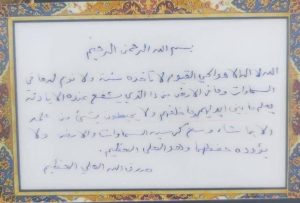 بسم الله الرحمن الرحيم
الله لا اله الا هو الحي القيوم لا تأخذه سنة ولا نوم له ما في
السماوات وما في الارض من ذا الذي يشفع عنده الا باذنه
يعلم ما بين ايديهم وما خلفهم ولا يحيطون بشئ من علمه
الا بما شاء وسع كرسيه السماوات والارض ولا
يؤوده حفظهما وهو العلي العظيم
صدق الله العلي العظيم